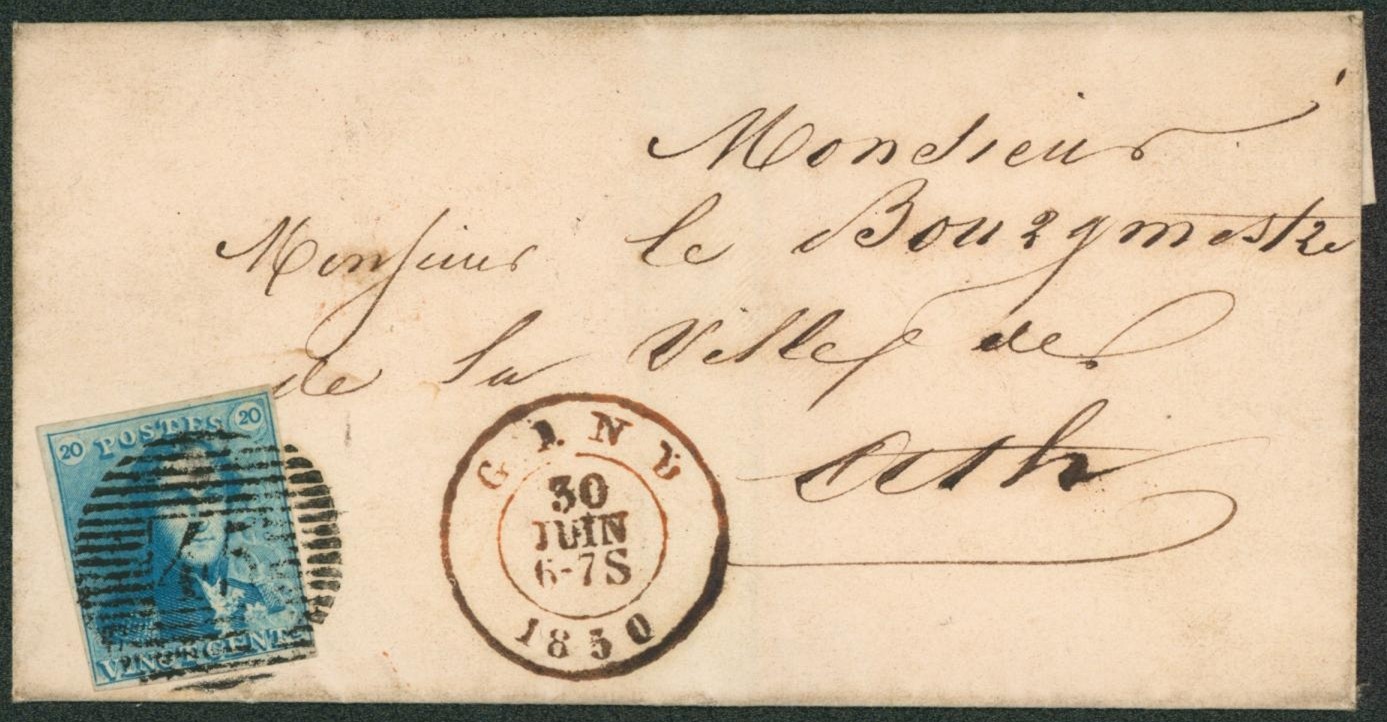 Monsieur
Monsieur le Bourgmestre
de la Ville de
ath
20 POSTES 20
VINGT CENTS
GAND
30
JUIN
6-7S
1850